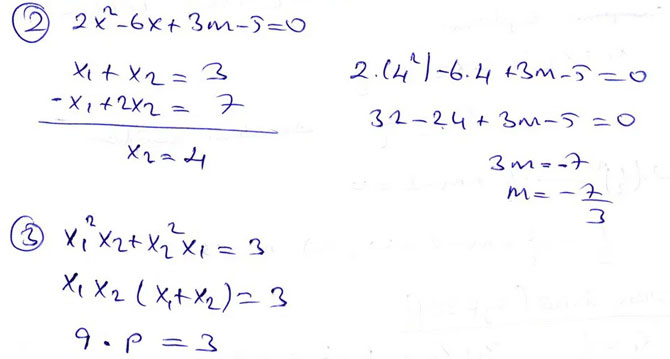 ② 2x²-6x+3m-5=0
x₁ + x₂ = 3
-x₁+2x₂ = 7
x₂ = 4
2.(4²)-6.4+3m-5=0
32-24+3m-5=0
3m=-7
m= -7/3
③ x₁²x₂+x₂²x₁ = 3
x₁x₂(x₁+x₂)=3
9 . p = 3